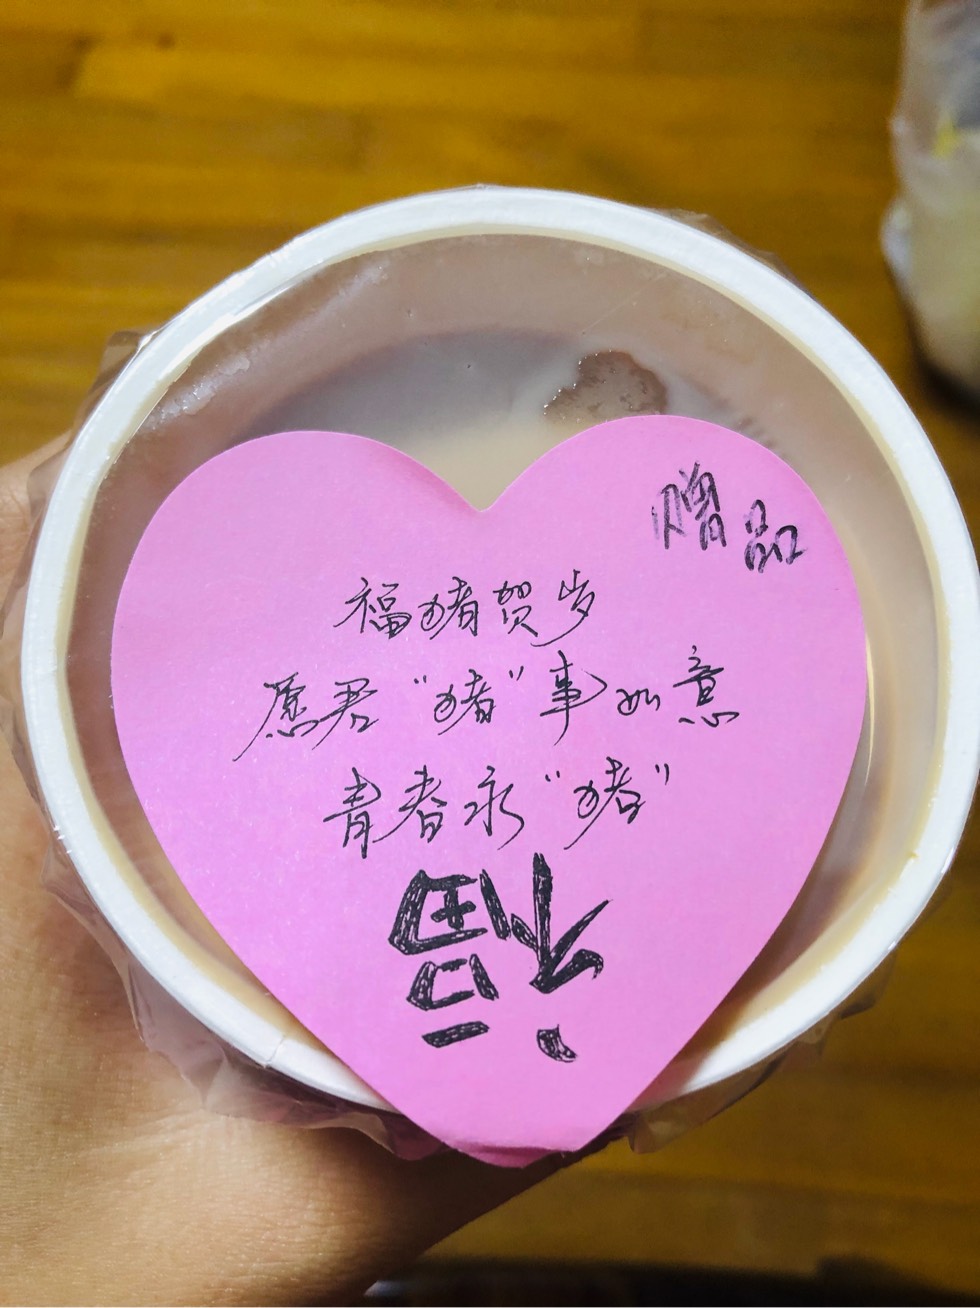 赠品
福猪贺岁
愿君“猪”事如意
青春永“猪”
福